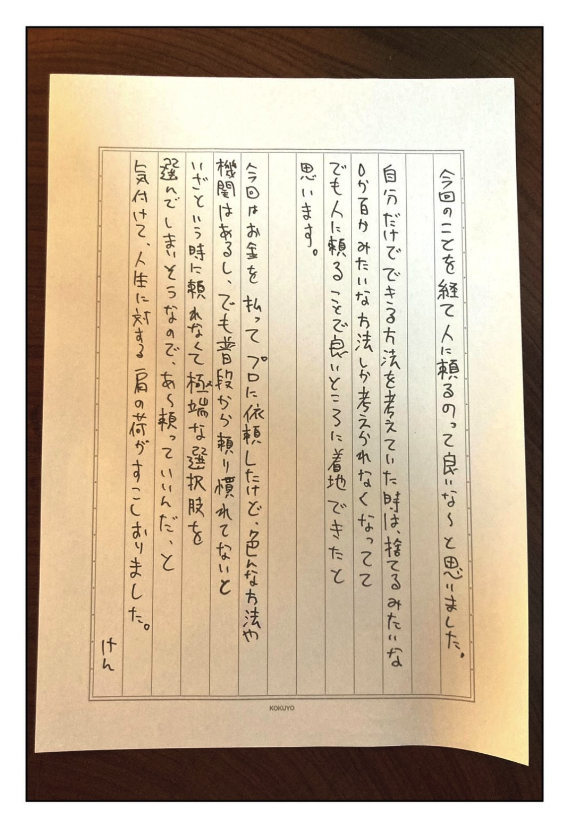 今回のことを経て人に頼るのって良いな〜と思いました。
自分だけでできる方法を考えていた時は、捨てるみたいな
0か百かみたいな方法しか考えられなくなってて
でも人に頼ることで良いところに着地できたと
思います。
今回はお金を払ってプロに依頼したけど、色んな方法や
機関はあるし、でも普段から頼り慣れてないと
いざという時に頼れなくて極端な選択肢を
選んでしまいそうなので、あ〜頼っていいんだ、と
気付けて、人生に対する肩の荷がすこしおりました。
けん
KOKUYO